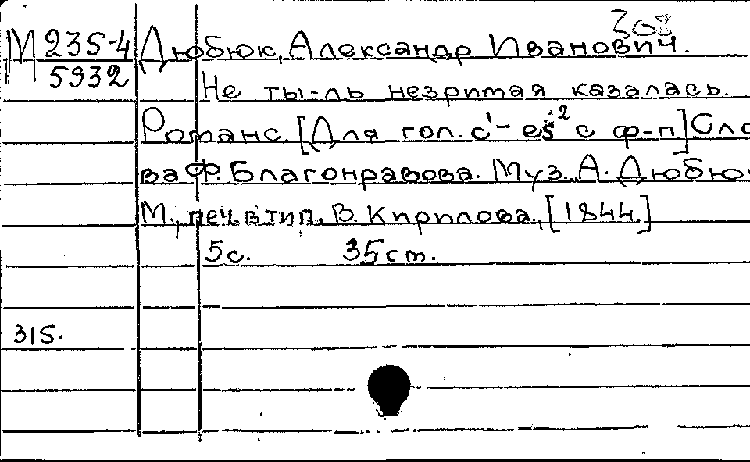 308
М 235-4 Дюбюк, Александр Иванович.
5932
Не ты-ль незримая казалась.
Романс. [Для гол. c¹- es² с ф-п] Сло
ва Ф. Благонравова. Муз. А. Дюбю
М., печ. в тип. В. Кирилова, [1844.]
5с. 35 cm.
315.